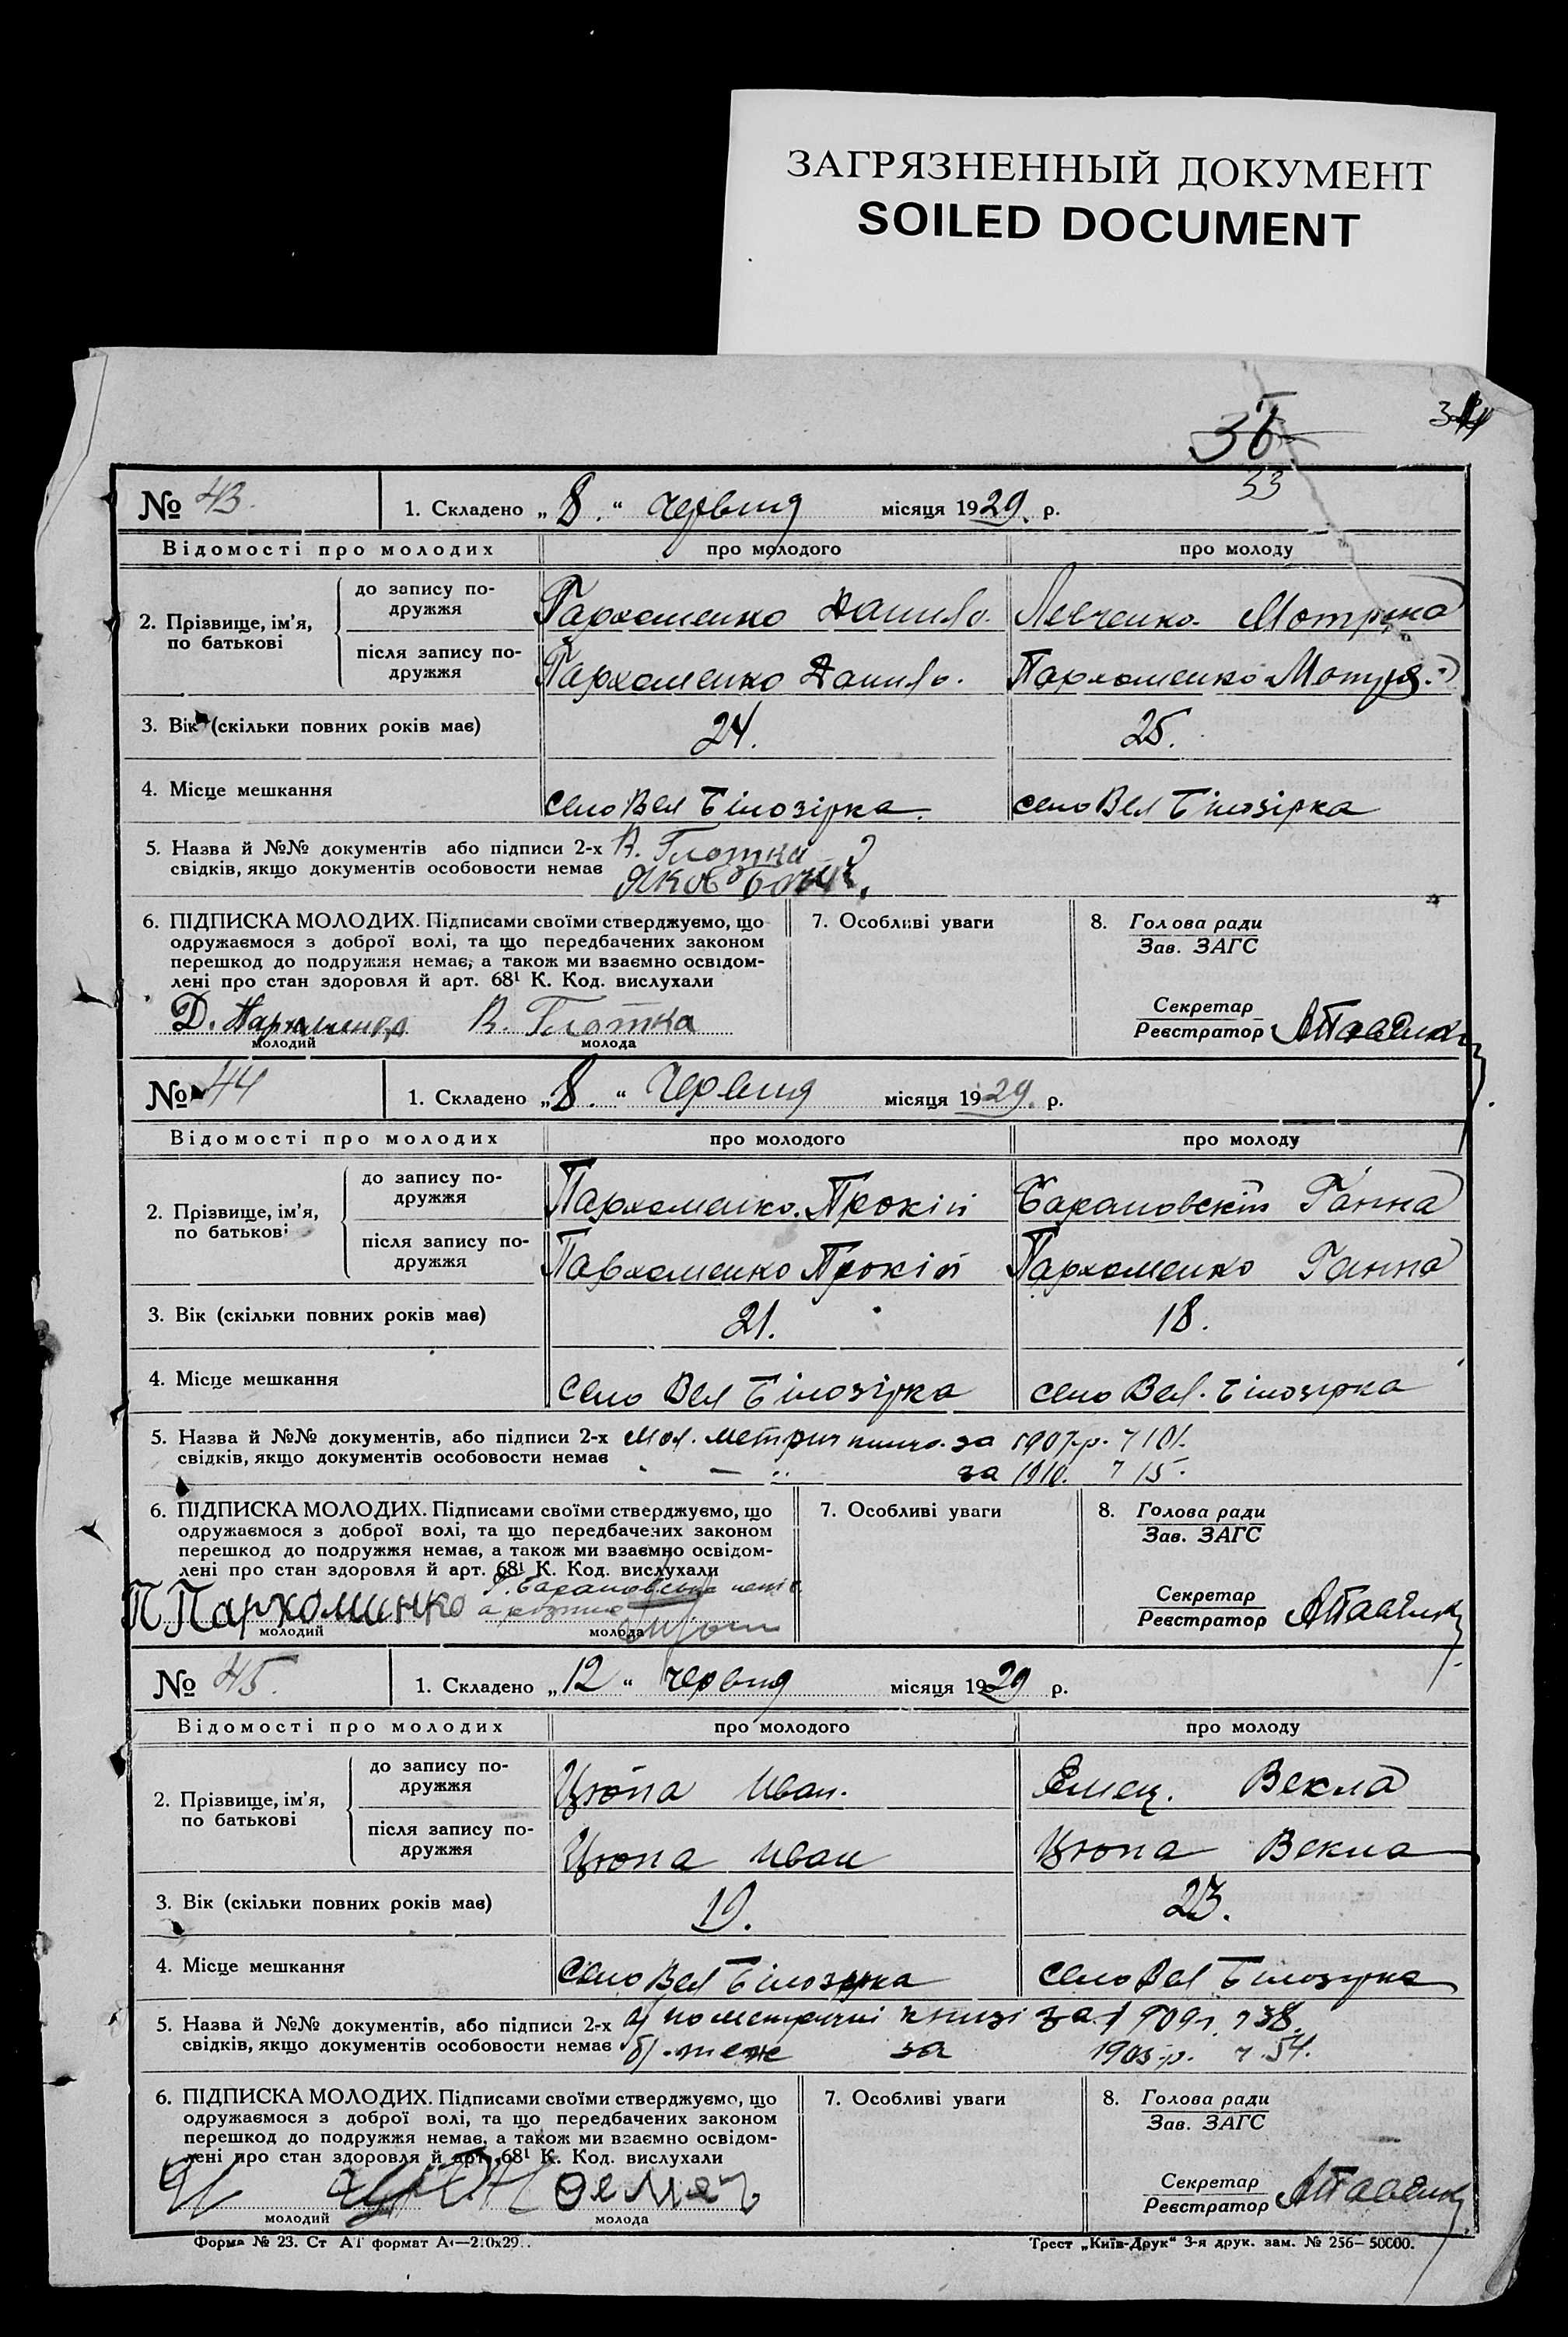 ЗАГРЯЗНЕННЫЙ ДОКУМЕНТ
SOILED DOCUMENT
33
№ 43. 1. Складено „8.“ червня місяця 1929. р.
Відомості про молодих про молодого про молоду
2. Прізвище, ім'я, по батькові
до запису подружжя Пархоменко Данило. Левченко Мотрина
після запису подружжя Пархоменко Данило. Пархоменко Мотря
3. Вік (скільки повних років має) 24. 25.
4. Місце мешкання село Вел Білозірка. село Вел Білозірка
5. Назва й №№ документів або підписи 2-х В. Глотка
свідків, якщо документів особовости немає Яков
6. ПІДПИСКА МОЛОДИХ. Підписами своїми стверджуємо, що 7. Особливі уваги 8. Голова ради
одружаємося з доброї волі, та що передбачених законом Зав. ЗАГС
перешкод до подружжя немає, а також ми взаємно освідом-
лені про стан здоровля й арт. 68¹ К. Код. вислухали
Секретар
Д. В. Глотка Реєстратор
молодий молода
№ 44 1. Складено „8.“ Червня місяця 1929. р.
Відомості про молодих про молодого про молоду
2. Прізвище, ім'я, по батькові
до запису подружжя Пархоменко. Прокіп Ганна
після запису подружжя Пархоменко Прокіп Пархоменко Ганна
3. Вік (скільки повних років має) 21. 18.
4. Місце мешкання село Вел Білозірка село Вел. Білозірка
5. Назва й №№ документів, або підписи 2-х за 1907 р. 101.
свідків, якщо документів особовости немає за 1910. 15.
6. ПІДПИСКА МОЛОДИХ. Підписами своїми стверджуємо, що 7. Особливі уваги 8. Голова ради
одружаємося з доброї волі, та що передбачених законом Зав. ЗАГС
перешкод до подружжя немає, а також ми взаємно освідом-
лені про стан здоровля й арт. 68¹ К. Код. вислухали
Секретар
П Пархоминко Реєстратор
молодий молода
№ 45. 1. Складено „12“ червня місяця 1929 р.
Відомості про молодих про молодого про молоду
2. Прізвище, ім'я, по батькові
до запису подружжя Цюпа Иван. Емец. Векла
після запису подружжя Цюпа Иван Цюпа Векла
3. Вік (скільки повних років має) 19. 23.
4. Місце мешкання село Вел Білозірка село Вел Білозірка
5. Назва й №№ документів, або підписи 2-х а) по метричні книзі за 1909 р. 38.
свідків, якщо документів особовости немає б) - теж за 1905 р. 54.
6. ПІДПИСКА МОЛОДИХ. Підписами своїми стверджуємо, що 7. Особливі уваги 8. Голова ради
одружаємося з доброї волі, та що передбачених законом Зав. ЗАГС
перешкод до подружжя немає, а також ми взаємно освідом-
лені про стан здоровля й арт. 68¹ К. Код. вислухали
Секретар
Реєстратор
молодий молода
Форма № 23. Ст АТ формат Трест „Київ-Друк“ 3-я друк. зам. № 256—50000.